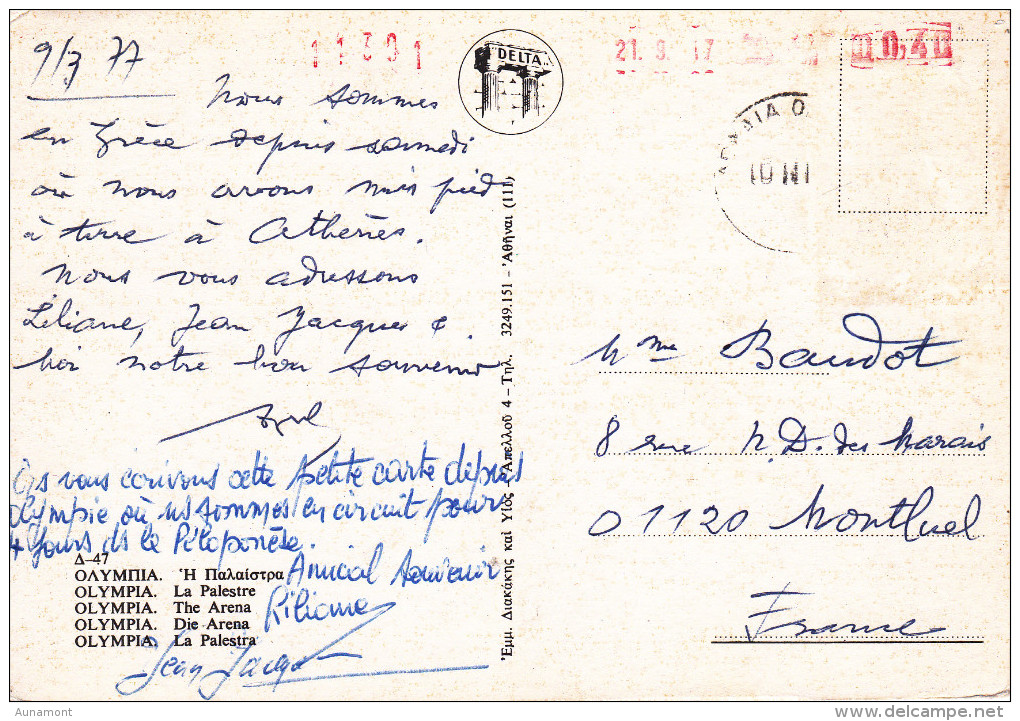 9/3 77
11301
DELTA
21.9. 17
0,40
Nous sommes
en Grèce depuis samedi
où nous avons mis pied
à terre à Athènes.
Nous vous adressons
Liliane, Jean Jacques &
moi notre bon souvenir
Ns vous écrivons cette petite carte depuis
Olympie où ns sommes en circuit pour
4 jours ds le Péloponèse.
Amical souvenir
Liliane
Jean Jacques
Δ-47
ΟΛΥΜΠΙΑ. Ἡ Παλαίστρα
OLYMPIA. La Palestre
OLYMPIA. The Arena
OLYMPIA. Die Arena
OLYMPIA. La Palestra
Ἐμμ. Διακάκης καὶ Υἱὸς - Ἀπελλοῦ 4 - Τηλ. 3249.151 - Ἀθῆναι (111)
Mme Baudot
8 rue N. D. des Marais
01120 Montluel
France
Aunamont
delcampe.net